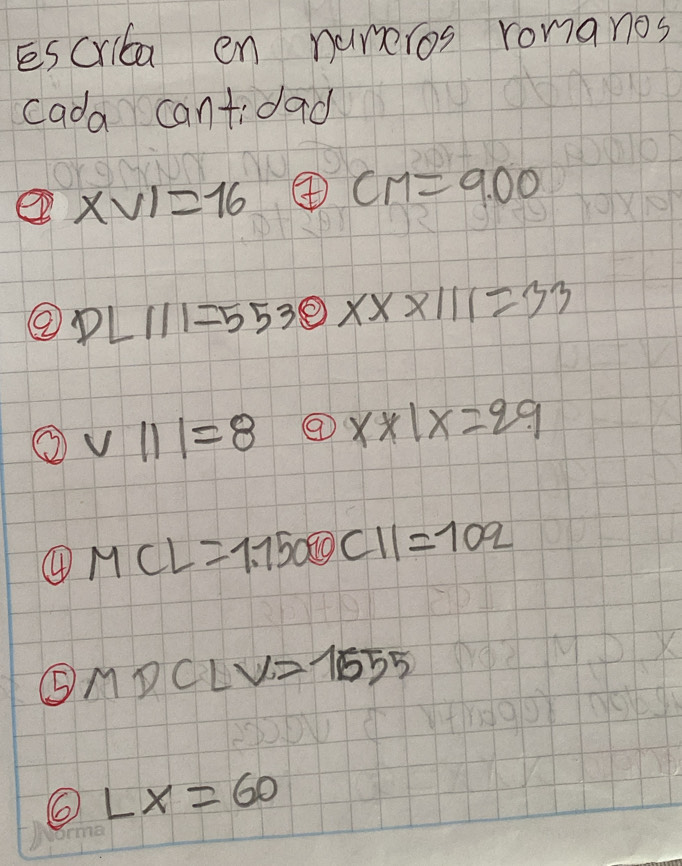 Escriba en numeros romanos
cada cantidad
① XVI=16 ⑦ CM=9.00
② DLIII=553 ⑧ XXXIII=33
③ VIII=8 ⑨ XXIX=29
④ MCL=1.150 ⑩ CII=102
⑤ MDCLV=1555
⑥ LX=60
Norma